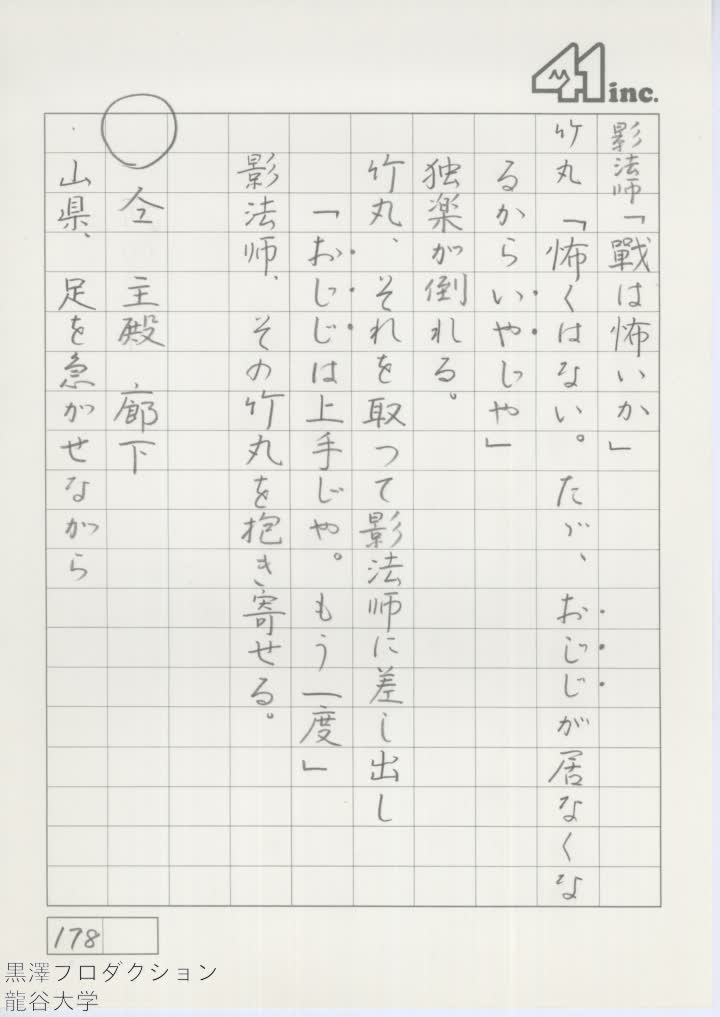 41 inc.
影法師「戰は怖いか」
竹丸「怖くはない。たゞ、おじじが居なくな
るからいやじや」
独楽が倒れる。
竹丸、それを取つて影法師に差し出し
「おじじは上手じや。もう一度」
影法師、その竹丸を抱き寄せる。
○仝 主殿 廊下
山県、足を急がせながら
178
黒澤プロダクション
龍谷大学